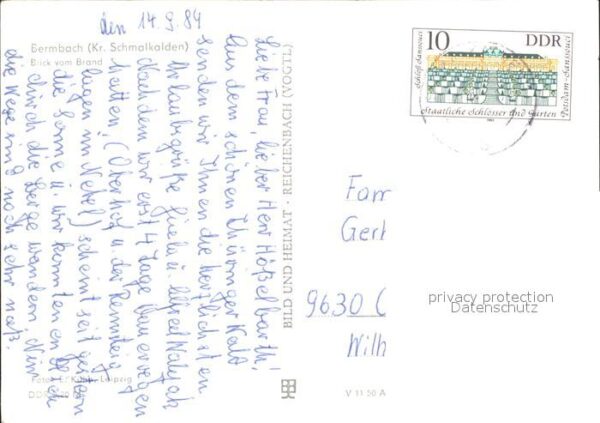 den 14.9.84
Bermbach (Kr. Schmalkalden)
Blick vom Brand
Liebe Frau, lieber Herr Hößelbarth!
Aus dem schönen Thüringer Wald
senden wir Ihnen die herzlichsten
Urlaubsgrüße Gisela u. Alfred
Nachdem wir erst 4 Tage Sauerregen
hatten, (Oberhof u. der Rennsteig
lagen im Nebel) scheint seit gestern
die Sonne u. wir konnten endlich
durch die Berge wandern. Nur
die Wege sind noch sehr naß.
Leipzig
BILD UND HEIMAT · REICHENBACH (VOGTL)
V 11 50 A
10 DDR
Schloß Sanssouci
Potsdam-Sanssouci
Staatliche Schlösser und Gärten
Fam
Gert
9630 C
Wilh
privacy protection
Datenschutz